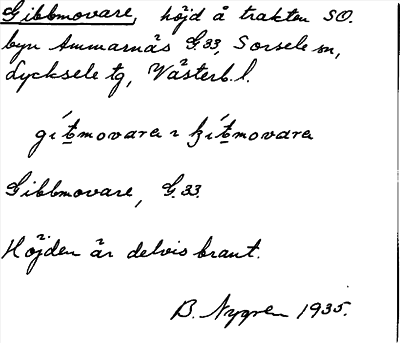 Gibbmovare, höjd å trakten SO.
byn Ammarnäs G.33, Sorsele sn,
Lycksele tg, Västerb.l.
gi´b̲movarɛ ɿ ḱi´b̲movarɛ
Gibbmovare, G.33.
Höjden är delvis brant.
B. Nygren 1935.